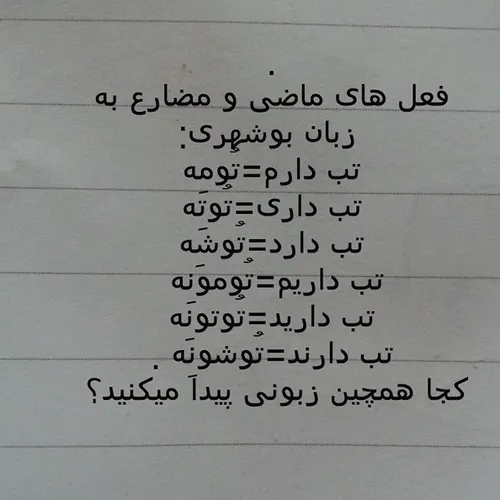 .
فعل های ماضی و مضارع به
زبان بوشهری:
تب دارم=تُومه
تب داری=تُوتَه
تب دارد=تُوشَه
تب داریم=تُومونَه
تب دارید=تُوتونَه
تب دارند=تُوشونَه .
کجا همچین زبونی پیداَ میکنید؟